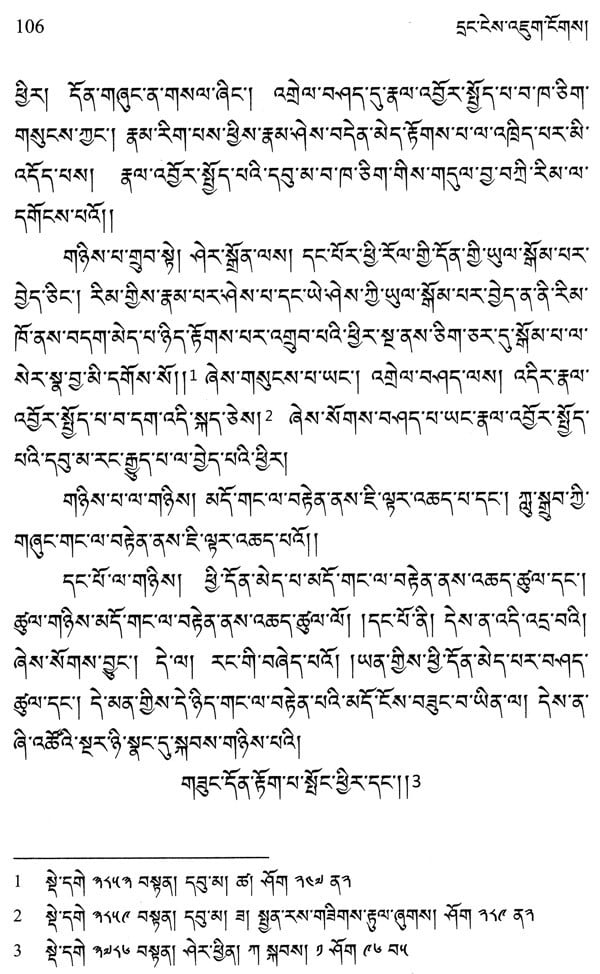 106
དྲང་ངེས་འཇུག་ངོགས།
ཕྱིར། དོན་གཞུང་ན་གསལ་ཞིང་། འགྲེལ་བཤད་དུ་རྣལ་འབྱོར་སྤྱོད་པ་བ་ཁ་ཅིག་
གསུངས་ཀྱང་། རྣམ་རིག་པས་ཕྱིས་རྣམ་ཤེས་བདེན་མེད་རྟོགས་པ་ལ་འཁྲིད་པར་མི་
འདོད་པས། རྣལ་འབྱོར་སྤྱོད་པའི་དབུ་མ་བ་ཁ་ཅིག་གིས་གདུལ་བྱ་བཀྲི་རིམ་ལ་
དགོངས་པའོ།།
གཉིས་པ་གྲུབ་སྟེ། ཤེར་སྒྲོན་ལས། དང་པོར་ཕྱི་རོལ་གྱི་དོན་གྱི་ཡུལ་སྒོམ་པར་
བྱེད་ཅིང་། རིམ་གྱིས་རྣམ་པར་ཤེས་པ་དང་ཡེ་ཤེས་ཀྱི་ཡུལ་སྒོམ་པར་བྱེད་ན་ནི་རིམ་
ཁོ་ནས་བདག་མེད་པ་ཉིད་རྟོགས་པར་འགྲུབ་པའི་ཕྱིར་སྔ་ནས་ཅིག་ཅར་དུ་སྒོམ་པ་ལ་
སེར་སྣ་བྱ་མི་དགོས་སོ།།1 ཞེས་གསུངས་པ་ཡང་། འགྲེལ་བཤད་ལས། འདིར་རྣལ་
འབྱོར་སྤྱོད་པ་བ་དག་འདི་སྐད་ཅེས།2 ཞེས་སོགས་བཤད་པ་ཡང་རྣལ་འབྱོར་སྤྱོད་
པའི་དབུ་མ་རང་རྒྱུད་པ་ལ་བྱེད་པའི་ཕྱིར།
གཉིས་པ་ལ་གཉིས། མདོ་གང་ལ་བརྟེན་ནས་ཇི་ལྟར་འཆད་པ་དང་། ཀླུ་སྒྲུབ་ཀྱི་
གཞུང་གང་ལ་བརྟེན་ནས་ཇི་ལྟར་འཆད་པའོ།།
དང་པོ་ལ་གཉིས། ཕྱི་དོན་མེད་པ་མདོ་གང་ལ་བརྟེན་ནས་འཆད་ཚུལ་དང་།
ཚུལ་གཉིས་མདོ་གང་ལ་བརྟེན་ནས་འཆད་ཚུལ་ལོ། །དང་པོ་ནི། དེས་ན་འདི་འདྲ་བའི།
ཞེས་སོགས་བྱུང་། དེ་ལ། རང་གི་བཞེད་པའོ། །ཡན་གྱིས་ཕྱི་དོན་མེད་པར་བཤད་
ཚུལ་དང་། དེ་མན་གྱིས་དེ་ཉིད་གང་ལ་བརྟེན་པའི་མདོ་ངོས་བཟུང་བ་ཡིན་ལ། དེས་ན་
ཞི་འཚོའི་སྔར་ཉི་སྣང་དུ་སྐབས་གཉིས་པའི།
གཟུང་དོན་རྟོག་པ་སྤོང་ཕྱིར་དང་།།3
1 སྡེ་དགེ ༣༨༥༣ བསྟན། དབུ་མ། ཚ། ཤོག ༢༤༧ ན༢
2 སྡེ་དགེ ༣༨༥༩ བསྟན། དབུ་མ། ཟ། སྤྱན་རས་གཟིགས་རྟུལ་ཞུགས། ཤོག ༢༨༩ ན༢
3 སྡེ་དགེ ༣༧༨༦ བསྟན། ཤེར་ཕྱིན། ཀ སྐབས། ༡ ཤོག ༩༦ བ༥